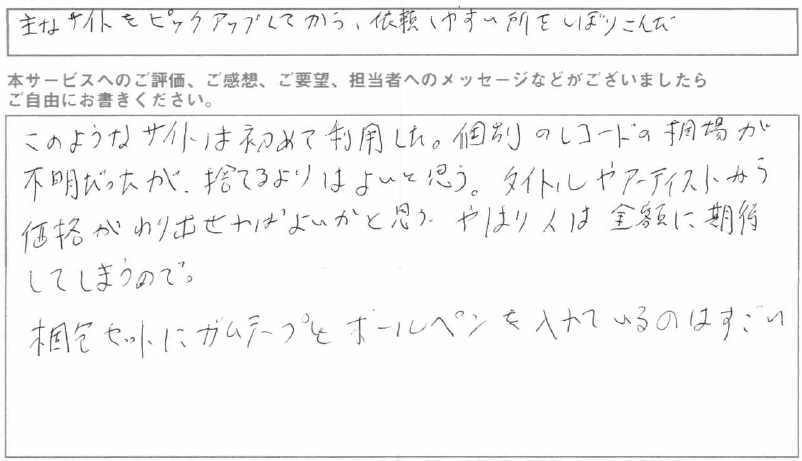 主なサイトをピックアップしてから、依頼しやすい所をしぼりこんだ
本サービスへのご評価、ご感想、ご要望、担当者へのメッセージなどがございましたら
ご自由にお書きください。
このようなサイトは初めて利用した。個別のレコードの相場が
不明だったが、捨てるよりはよいと思う。タイトルやアーティストから
価格がわり出せればよいかと思う。やはり人は金額に期待
してしまうので。
梱包セットにガムテープとボールペンを入れているのはすごい